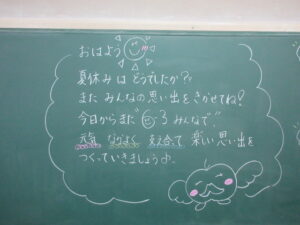 おはよう
夏休みはどうでしたか??
また みんなの思い出をきかせてね!
今日からまた 3 みんなで!
元気 なかよく 支え合って 楽しい思い出を
つくっていきましょう♪。